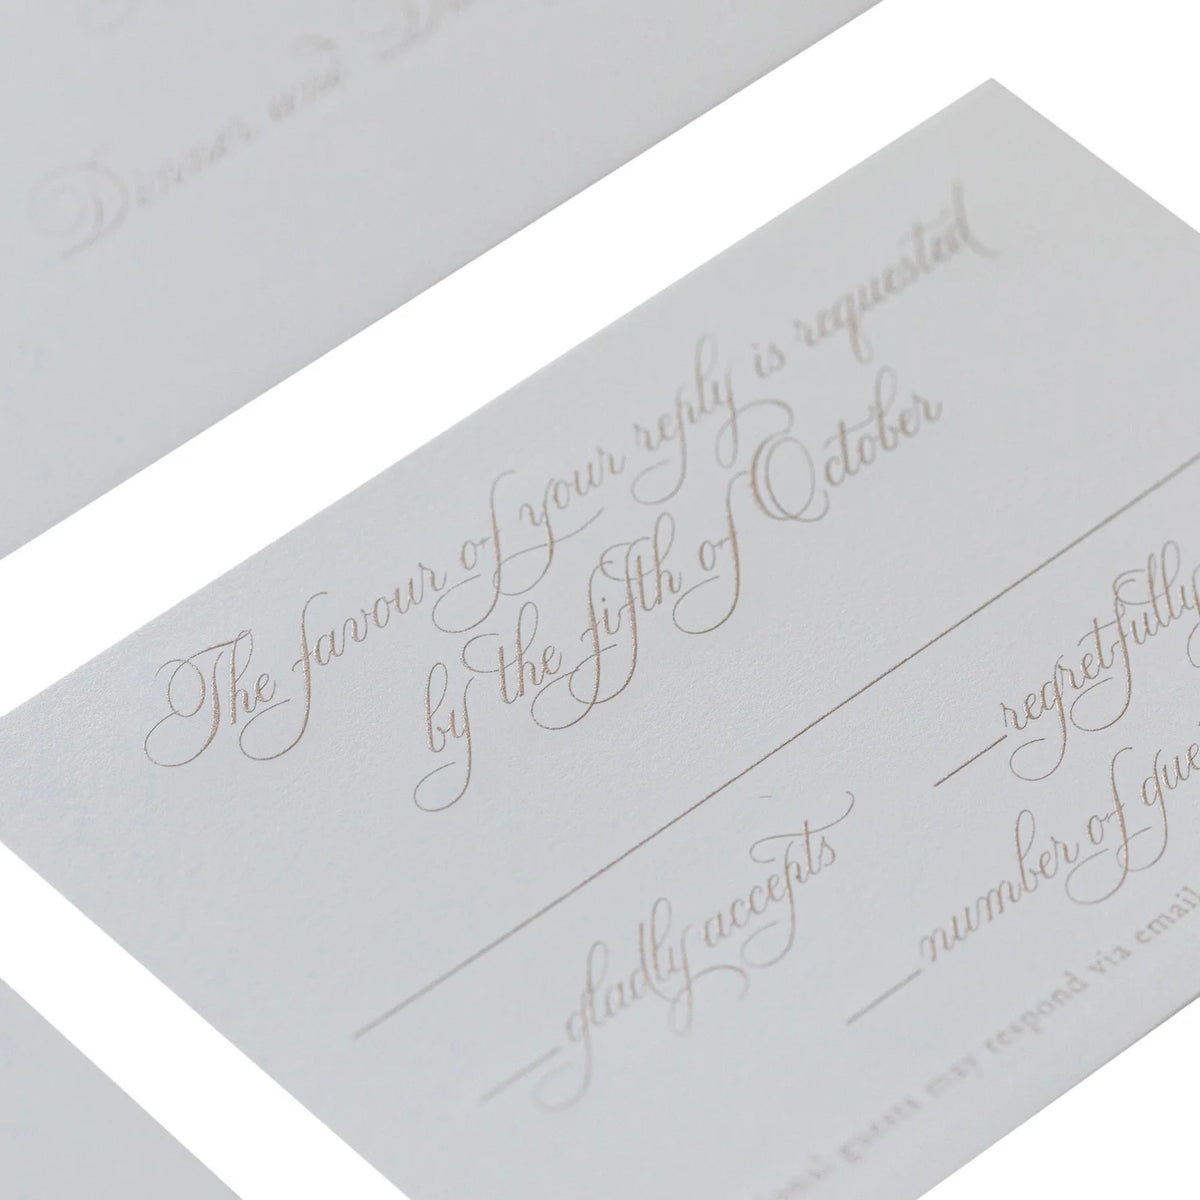 Dinner and
The favour of your reply is requested
by the fifth of October
gladly accepts
regretfully
number of
guests may respond via email